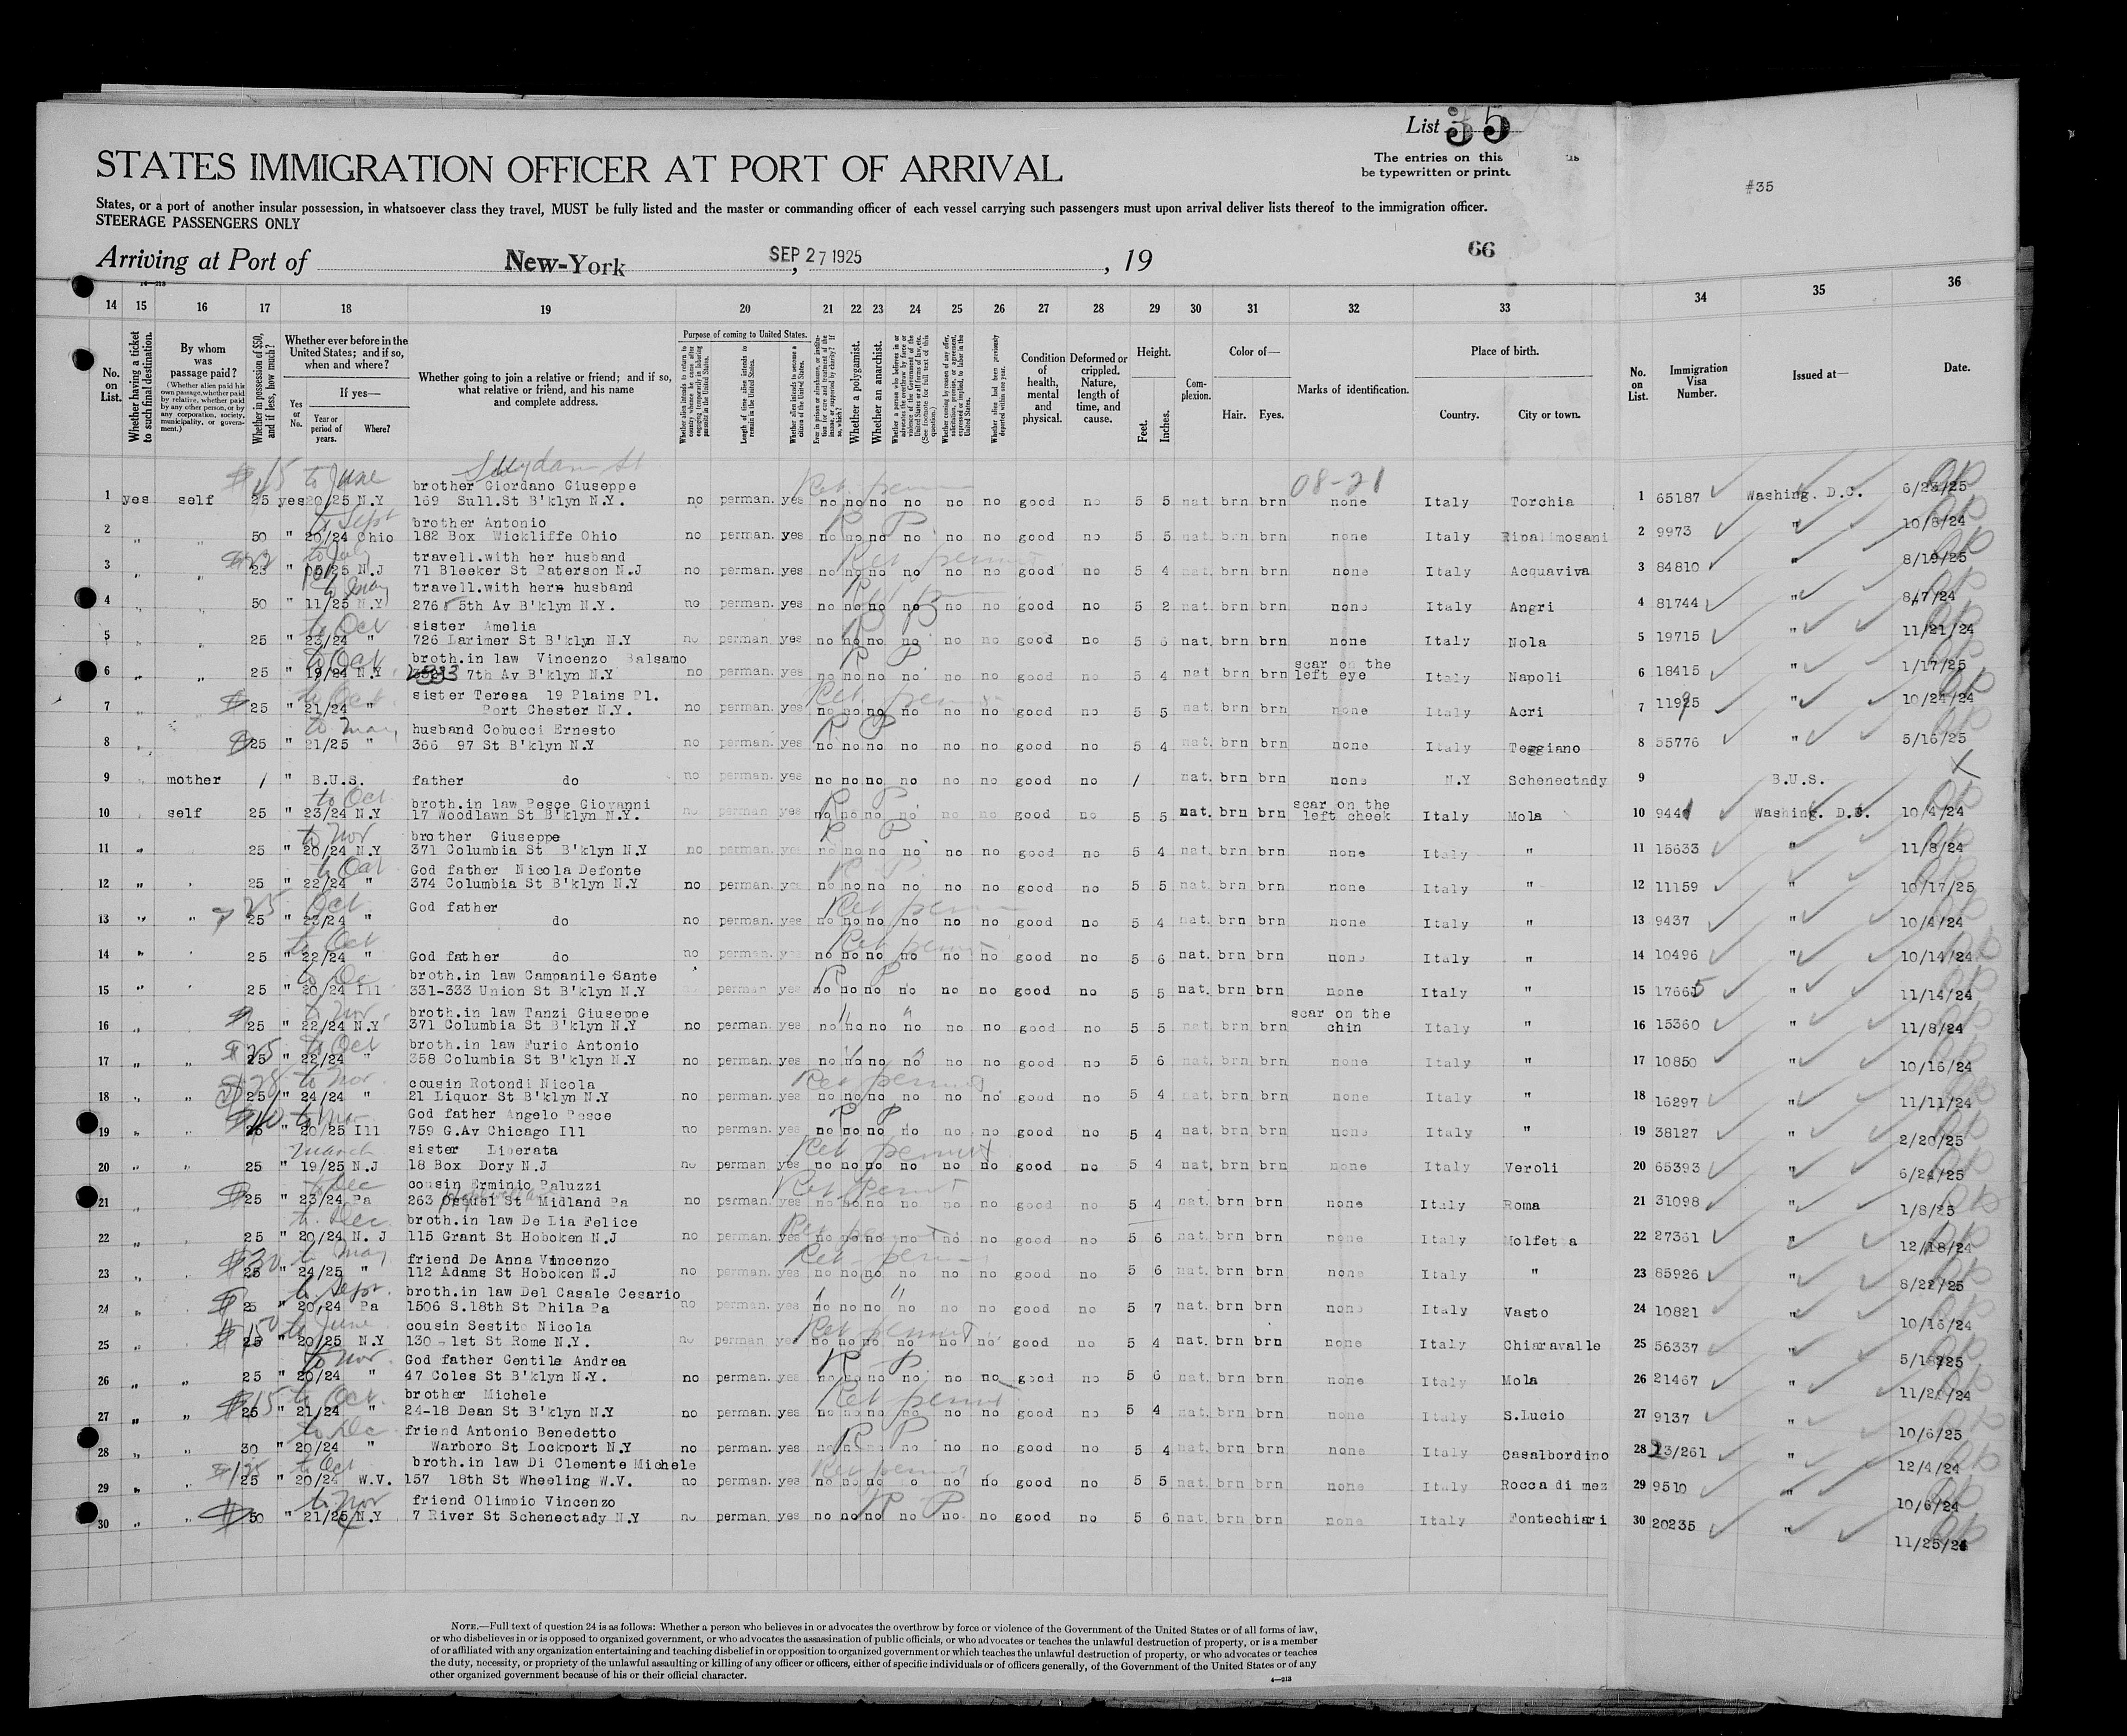 List 35
The entries on this
be typewritten or
#35
STATES IMMIGRATION OFFICER AT PORT OF ARRIVAL
States, or a port of another insular possession, in whatsoever class they travel, MUST be fully listed and the master or commanding officer of each vessel carrying such passengers must upon arrival deliver lists thereof to the immigration officer.
STEERAGE PASSENGERS ONLY
Arriving at Port of New-York, SEP 27 1925, 19
66
14 15 16 17 18 19 20 21 22 23 24 25 26 27 28 29 30 31 32 33 34 35 36
No. on List.
Whether having a ticket to such final destination.
By whom was passage paid?
(Whether alien paid his own passage, whether paid by relative, whether paid by any other person, or by any corporation, society, municipality, or government.)
Whether in possession of $50, and if less, how much?
Whether ever before in the United States; and if so, when and where?
If yes—
Yes or No.
Year or period of years.
Where?
Whether going to join a relative or friend; and if so, what relative or friend, and his name and complete address.
Purpose of coming to United States.
Length of time alien intends to remain in the United States.
Whether alien intends to become a citizen of the United States.
Whether a polygamist.
Whether an anarchist.
Condition of health, mental and physical.
Deformed or crippled. Nature, length of time, and cause.
Height.
Feet.
Inches.
Complexion.
Color of—
Hair. Eyes.
Marks of identification.
Place of birth.
Country. City or town.
No. on List.
Immigration Visa Number.
Issued at—
Date.
$15 to June Suydam St Ret. perm 08-21
brother Giordano Giuseppe
1 yes self 25 yes 20/25 N.Y 169 Sull.St B'klyn N.Y. no perman. yes no no no no no no good no 5 5 nat. brn brn none Italy Torchia 1 65187 Washing. D.C. 6/23/25
to Sept R P
brother Antonio
2 " " 50 " 20/24 Ohio 182 Box Wickliffe Ohio no perman. yes no no no no no no good no 5 5 nat. brn brn none Italy Ripalimosani 2 9973 " 10/8/24
to July Ret permit
travell.with her husband
3 " " 23 " 05/25 N.J 71 Bleeker St Paterson N.J no perman. yes no no no no no no good no 5 4 nat. brn brn none Italy Acquaviva 3 84810 " 8/19/25
to May
travell.with hers husband
4 " " 50 " 11/25 N.Y 276 5th Av B'klyn N.Y. no perman. yes no no no no no no good no 5 2 nat. brn brn none Italy Angri 4 81744 " 8/7/24
to Oct R P
sister Amelia
5 " " 25 " 23/24 " 726 Larimer St B'klyn N.Y no perman. yes no no no no no no good no 5 6 nat. brn brn none Italy Nola 5 19715 " 11/21/24
to Oct R P
broth.in law Vincenzo Balsamo
6 " " 25 " 19/24 N.Y 7th Av B'klyn N.Y no perman. yes no no no no no no good no 5 4 nat. brn brn scar on the left eye Italy Napoli 6 18415 " 1/17/25
to Oct Ret permit
sister Teresa 19 Plains Pl.
7 " $25 " 21/24 " Port Chester N.Y. no perman. yes no no no no no no good no 5 5 nat. brn brn none Italy Acri 7 11925 " 10/24/24
to May R P
husband Cobucci Ernesto
8 " 25 " 21/25 " 366 97 St B'klyn N.Y no perman. yes no no no no no no good no 5 4 nat. brn brn none Italy Teggiano 8 55776 " 5/16/25
9 " mother / " B.U.S. father do no perman. yes no no no no no no good no / nat. brn brn none N.Y Schenectady 9 B.U.S. X
to Oct R P
broth.in law Pesce Giovanni
10 self 25 " 23/24 N.Y 17 Woodlawn St B'klyn N.Y. no perman. yes no no no no no no good no 5 5 nat. brn brn scar on the left cheek Italy Mola 10 9441 Washing. D.C. 10/4/24
to Nov R P
brother Giuseppe
11 " 25 " 20/24 N.Y 371 Columbia St B'klyn N.Y no perman. yes no no no no no no good no 5 4 nat. brn brn none Italy " 11 15633 " 11/8/24
to Oct R P.
God father Nicola Defonte
12 " " 25 " 22/24 " 374 Columbia St B'klyn N.Y no perman. yes no no no no no no good no 5 5 nat. brn brn none Italy " 12 11159 " 10/17/25
25 Oct Ret perm
God father
13 " " 25 " 23/24 " do no perman. yes no no no no no no good no 5 4 nat. brn brn none Italy " 13 9437 " 10/4/24
to Oct Ret permit
14 " " 25 " 22/24 " God father do no perman. yes no no no no no no good no 5 6 nat. brn brn none Italy " 14 10496 " 10/14/24
to Dec R P
broth.in law Campanile Sante
15 " " 25 " 20/24 Ill 331-333 Union St B'klyn N.Y perman yes no no no no no no good no 5 5 nat. brn brn none Italy " 15 17665 " 11/14/24
to Nov. " "
broth.in law Tanzi Giuseppe
16 " " 25 " 22/24 N.Y 371 Columbia St B'klyn N.Y no perman. yes no no no no no no good no 5 5 nat. brn brn scar on the chin Italy " 16 15360 " 11/8/24
$25 to Oct " "
broth.in law Furio Antonio
17 " " 25 " 22/24 " 358 Columbia St B'klyn N.Y no perman. yes no no no no no no good no 5 6 nat. brn brn none Italy " 17 10850 " 10/16/24
$28 to Nov. Ret permit
cousin Rotondi Nicola
18 " " 25 " 24/24 " 21 Liquor St B'klyn N.Y no perman. yes no no no no no no good no 5 4 nat. brn brn none Italy " 18 16297 " 11/11/24
R P
God father Angelo Pesce
19 " " " 20/25 Ill 759 G.Av Chicago Ill no perman. yes no no no no no no good no 5 4 nat. brn brn none Italy " 19 38127 " 2/20/25
March Ret permit
sister Liberata
20 " " 25 " 19/25 N.J 18 Box Dory N.J no perman yes no no no no no no good no 5 4 nat. brn brn none Italy Veroli 20 65393 " 6/24/25
to Dec Ret Permit
cousin Erminio Paluzzi
21 " " $25 " 23/24 Pa 263 St Midland Pa no perman. yes no no no no no no good no 5 4 nat. brn brn none Italy Roma 21 31098 " 1/8/25
to. Dec Ret permit
broth.in law De Lia Felice
22 " 25 " 20/24 N. J 115 Grant St Hoboken N.J no perman. yes no no no no no no good no 5 6 nat. brn brn none Italy Molfetta 22 27361 " 12/18/24
$30 to May Ret- permit
friend De Anna Vincenzo
23 " " 25 " 24/25 " 112 Adams St Hoboken N.J no perman. yes no no no no no no good no 5 6 nat. brn brn none Italy " 23 85926 " 8/22/25
to. Sept. " "
broth.in law Del Casale Cesario
24 " " 25 " 20/24 Pa 1506 S.18th St Phila Pa no perman. yes no no no no no no good no 5 7 nat. brn brn none Italy Vasto 24 10821 " 10/16/24
$150 to June Ret permit
cousin Sestito Nicola
25 " " 25 " 20/25 N.Y 130 - 1st St Rome N.Y. no perman yes no no no no no no good no 5 4 nat. brn brn none Italy Chiaravalle 25 56337 " 5/18/25
to Nov. R P.
God father Gentile Andrea
26 " " 25 " 20/24 " 47 Coles St B'klyn N.Y. no perman. yes no no no no no no good no 5 6 nat. brn brn none Italy Mola 26 21467 "
$15 to Oct. Ret permit
brother Michele
27 " " 25 " 21/24 " 24-18 Dean St B'klyn N.Y no perman. yes no no no no no no good no 5 4 nat. brn brn none Italy S.Lucio 27 9137 " 10/6/25
to Dec R P
friend Antonio Benedetto
28 " " 30 " 20/24 " Warboro St Lockport N.Y no perman. yes no no no no no no good no 5 4 nat. brn brn none Italy Casalbordino 28 23/261 " 12/4/24
to Oct Ret permit
broth.in law Di Clemente Michele
29 " " 25 " 20/24 W.V. 157 18th St Wheeling W.V. no perman. yes no no no o no no good no 5 5 nat. brn brn none Italy Rocca di mez 29 9510 " 10/6/24
to Nov R P
friend Olimpio Vincenzo
30 " " $50 " 21/25 N.Y 7 River St Schenectady N.Y no perman. yes no no no no no no good no 5 6 nat. brn brn none Italy Fontechiari 30 20235 " 11/25/24
NOTE.—Full text of question 24 is as follows: Whether a person who believes in or advocates the overthrow by force or violence of the Government of the United States or of all forms of law,
or who disbelieves in or is opposed to organized government, or who advocates the assassination of public officials, or who advocates or teaches the unlawful destruction of property, or is a member
of or affiliated with any organization entertaining and teaching disbelief in or opposition to organized government or which teaches the unlawful destruction of property, or who advocates or teaches
the duty, necessity, or propriety of the unlawful assaulting or killing of any officer or officers, either of specific individuals or of officers generally, of the Government of the United States or of any
other organized government because of his or their official character.